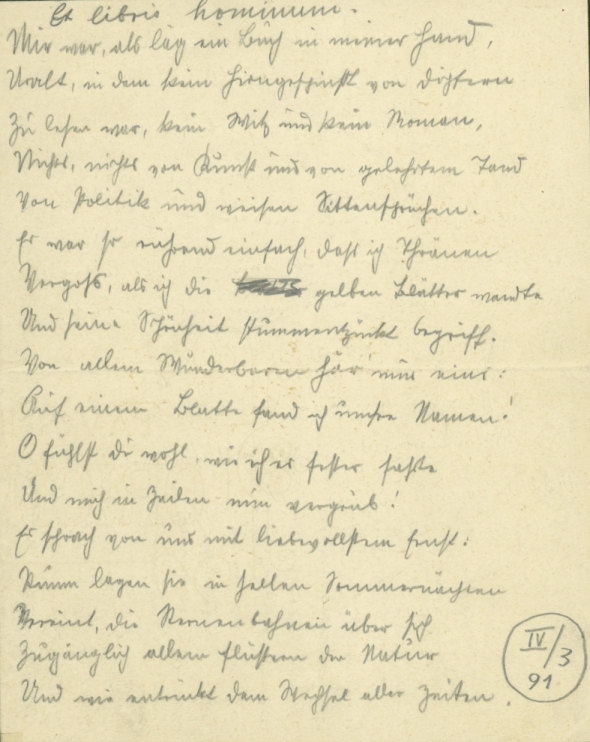 Ex libris hominum.
Mir war, als läg ein Buch in meiner Hand,
Uralt, in dem kein Hirngespinst von Dichtern
Zu lesen war, kein Witz und kein Roman,
Nichts, nichts von Kunst und von gelehrtem Tand
Von Politik und weisen Sittensprüchen.
Er war so rührend einfach, dass ich Thränen
Vergoss, als ich die gelben Blätter wandte
Und seine Schönheit stummentzückt begriff.
Von allem Wunderbaren hör' nur eins:
Auf einem Blatte fand ich unsre Namen!
O fühlst du wohl, wie ich es fester fasste
Und mich in Zeilen nun vergrub!
Er sprach von uns mit liebevollstem Ernst:
Stumm lagen sie in hellen Sommernächten
Vereint, die Sternenbahnen über sich
Zugänglich allem Flüstern der Natur
Und wie entrückt dem Wechsel aller Zeiten.
IV/3
91